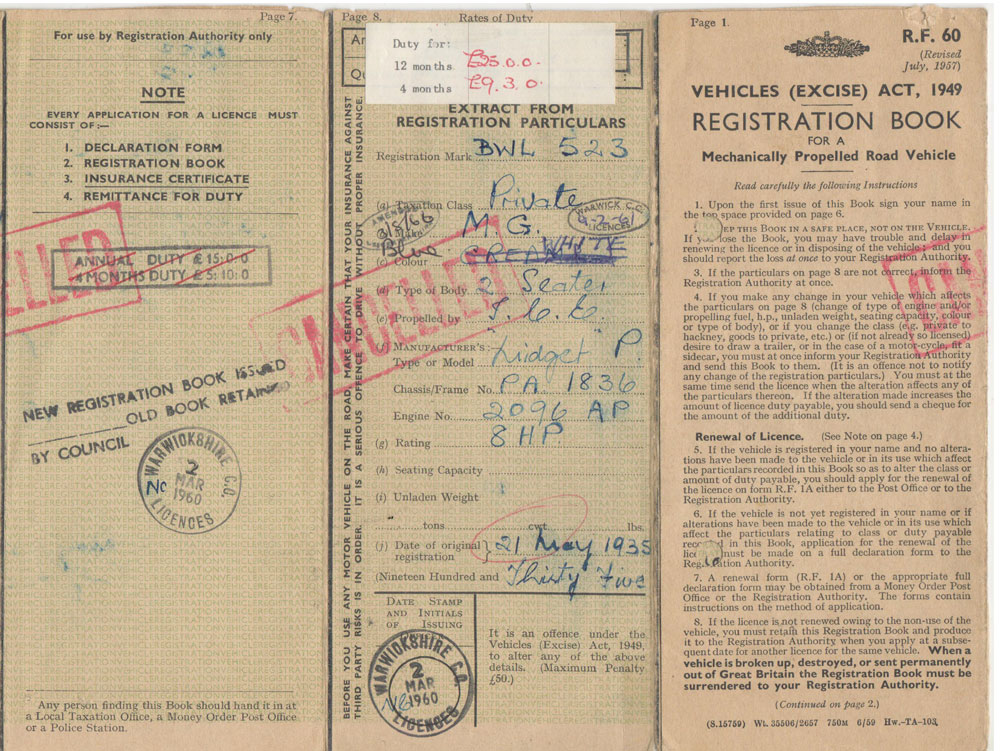 Page 7.
For use by Registration Authority only
NOTE
EVERY APPLICATION FOR A LICENCE MUST
CONSIST OF :—
1. DECLARATION FORM
2. REGISTRATION BOOK
3. INSURANCE CERTIFICATE
4. REMITTANCE FOR DUTY
ANNUAL DUTY £15:0:0
4 MONTHS DUTY £5:10:0
NEW REGISTRATION BOOK ISSUED
OLD BOOK RETAINED
BY COUNCIL
WARWICKSHIRE C.C.
2
MAR
1960
LICENCES
Any person finding this Book should hand it in at
a Local Taxation Office, a Money Order Post Office
or a Police Station.
Page 8.
Rates of Duty
Duty for:
12 months £25.0.0.
4 months £9.3.0.
EXTRACT FROM
REGISTRATION PARTICULARS
Registration Mark BWL 523
(a) Taxation Class Private
M.G.
WARWICK C.C.
9-2-61
LICENCES
31/5/66
Blue
(c) Colour CREAM WHITE
(d) Type of Body 2 Seater
(e) Propelled by I.C.E.
(f) MANUFACTURER'S:
Type or Model Midget P.
Chassis/Frame No. PA 1836
Engine No. 2096 AP
(g) Rating 8 HP
(h) Seating Capacity
(i) Unladen Weight
tons cwt. lbs.
(j) Date of original
registration } 21 May 1935
(Nineteen Hundred and Thirty Five
DATE STAMP
AND INITIALS
OF ISSUING
WARWICKSHIRE C.C.
2
MAR
1960
LICENCES
It is an offence under the
Vehicles (Excise) Act, 1949,
to alter any of the above
details. (Maximum Penalty
£50.)
BEFORE YOU USE ANY MOTOR VEHICLE ON THE ROAD, MAKE CERTAIN THAT YOUR INSURANCE AGAINST
THIRD PARTY RISKS IS IN ORDER. IT IS A SERIOUS OFFENCE TO DRIVE WITHOUT PROPER INSURANCE.
CANCELLED
Page 1.
R.F. 60
(Revised
July, 1957)
VEHICLES (EXCISE) ACT, 1949
REGISTRATION BOOK
FOR A
Mechanically Propelled Road Vehicle
Read carefully the following Instructions
1. Upon the first issue of this Book sign your name in
the top space provided on page 6.
KEEP THIS BOOK IN A SAFE PLACE, NOT ON THE VEHICLE.
If you lose the Book, you may have trouble and delay in
renewing the licence or in disposing of the vehicle; and you
should report the loss at once to your Registration Authority.
3. If the particulars on page 8 are not correct, inform the
Registration Authority at once.
4. If you make any change in your vehicle which affects
the particulars on page 8 (change of type of engine and/or
propelling fuel, h.p., unladen weight, seating capacity, colour
or type of body), or if you change the class (e.g. private to
hackney, goods to private, etc.) or (if not already so licensed)
desire to draw a trailer, or in the case of a motor-cycle fit a
sidecar, you must at once inform your Registration Authority
and send this Book to them. (It is an offence not to notify
any change of the registration particulars.) You must at the
same time send the licence when the alteration affects any of
the particulars thereon. If the alteration made increases the
amount of licence duty payable, you should send a cheque for
the amount of the additional duty.
Renewal of Licence. (See Note on page 4.)
5. If the vehicle is registered in your name and no altera-
tions have been made to the vehicle or in its use which affect
the particulars recorded in this Book so as to alter the class or
amount of duty payable, you should apply for the renewal of
the licence on form R.F. 1A either to the Post Office or to the
Registration Authority.
6. If the vehicle is not yet registered in your name or if
alterations have been made to the vehicle or in its use which
affect the particulars relating to class or duty payable
recorded in this Book, application for the renewal of the
licence must be made on a full declaration form to the
Registration Authority.
7. A renewal form (R.F. 1A) or the appropriate full
declaration form may be obtained from a Money Order Post
Office or the Registration Authority. The forms contain
instructions on the method of application.
8. If the licence is not renewed owing to the non-use of the
vehicle, you must retain this Registration Book and produce
it to the Registration Authority when you apply at a subse-
quent date for another licence for the same vehicle. When a
vehicle is broken up, destroyed, or sent permanently
out of Great Britain the Registration Book must be
surrendered to your Registration Authority.
(Continued on page 2.)
(S.15759) Wt. 35506/2657 750M 6/59 Hw.-TA-103.